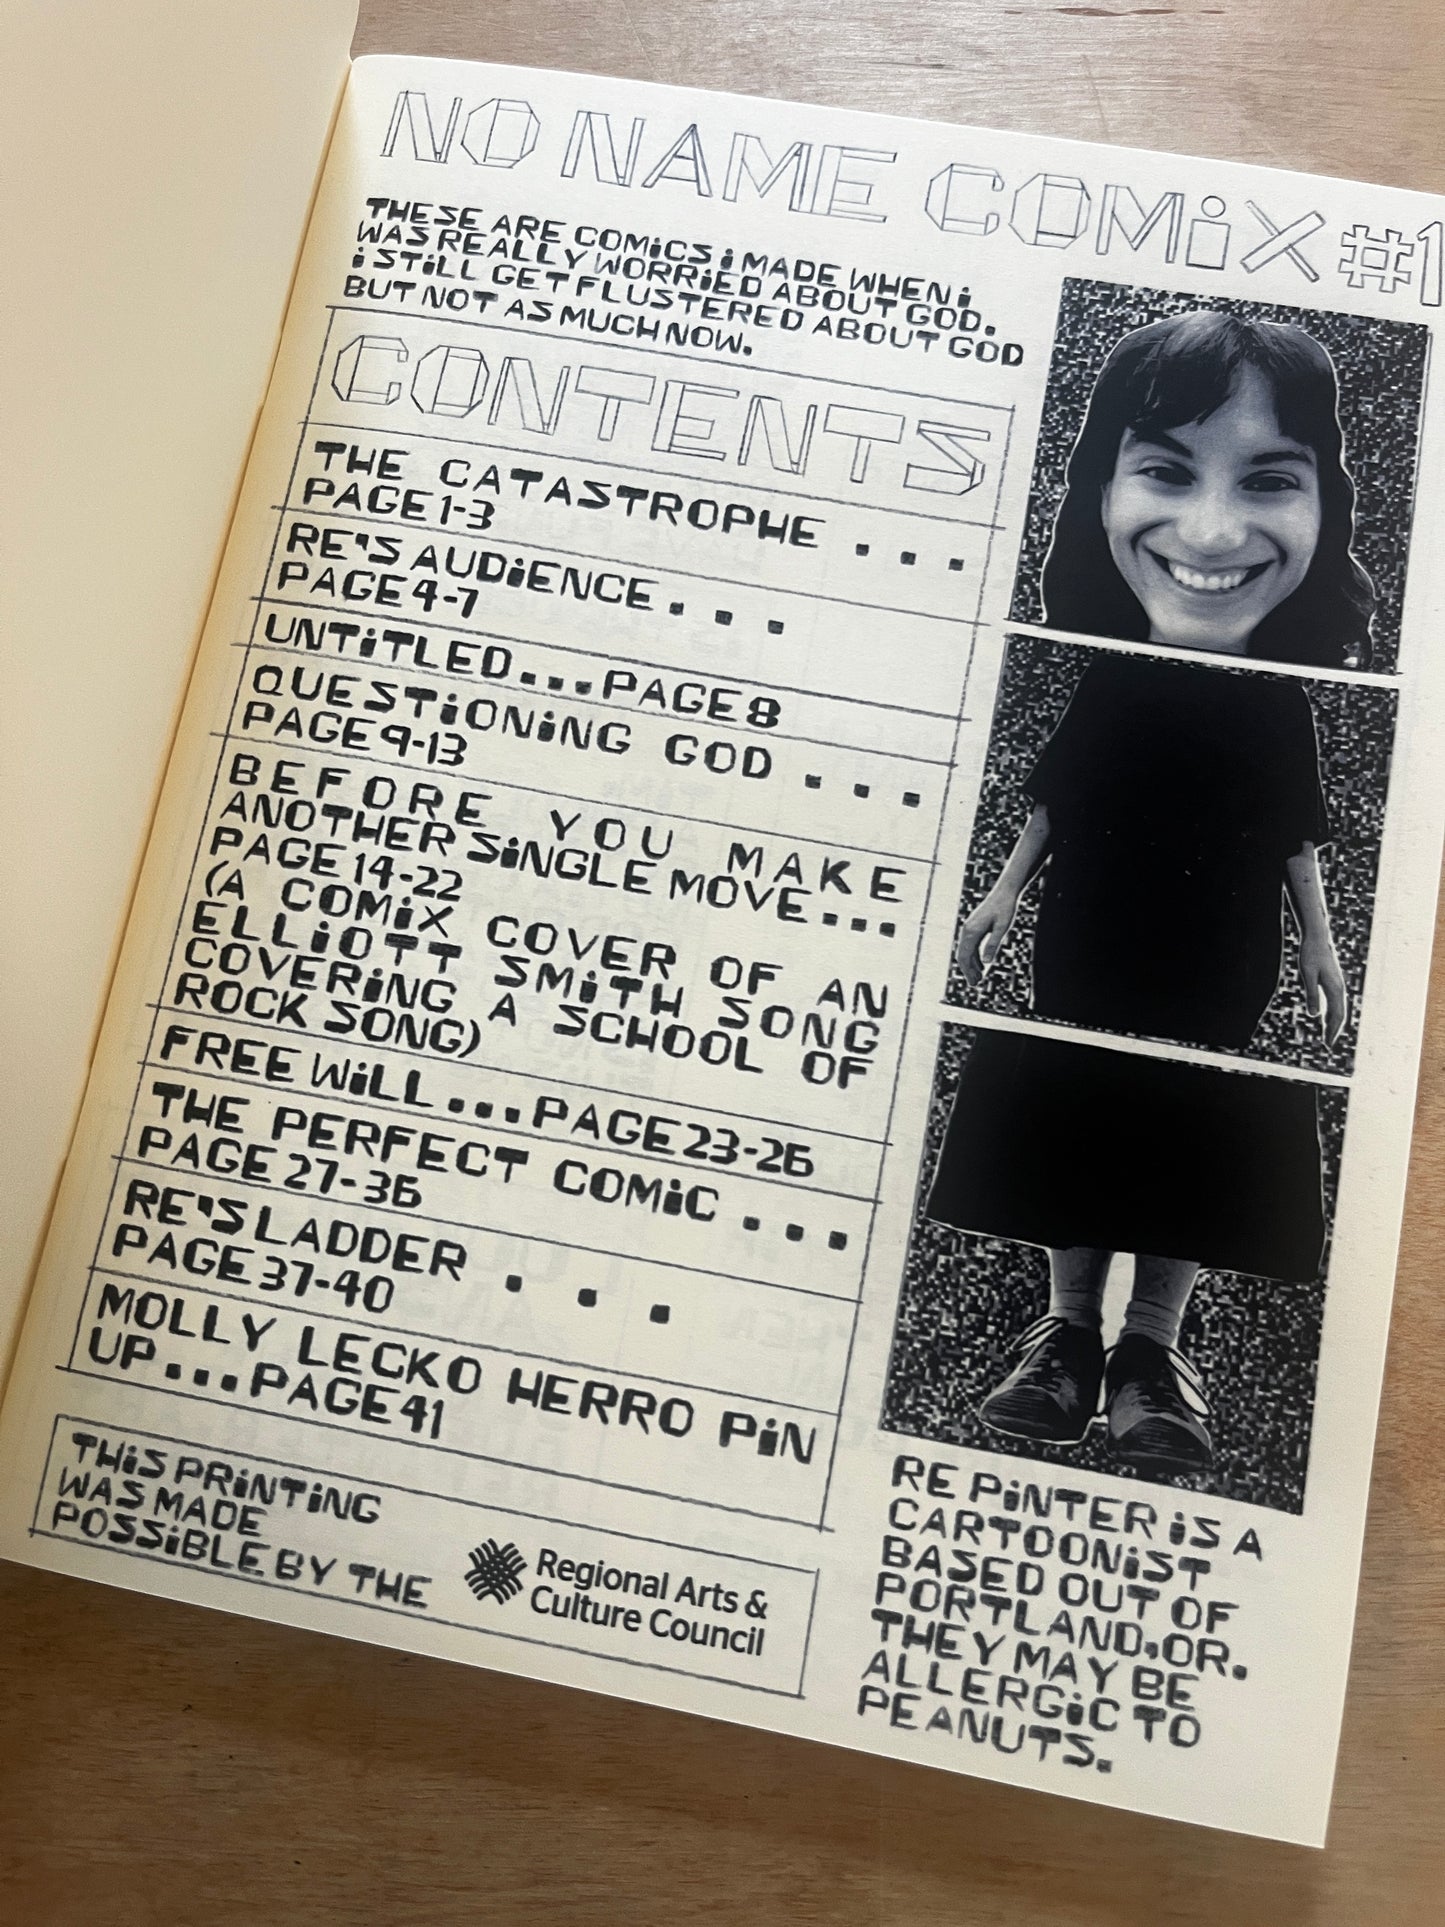 NO NAME COMiX #1
THESE ARE COMiCS i MADE WHEN i
WAS REALLY WORRiED ABOUT GOD.
i STiLL GET FLUSTERED ABOUT GOD
BUT NOT AS MUCH NOW.
CONTENTS
THE CATASTROPHE . . .
PAGE 1-3
RE'S AUDiENCE . . .
PAGE 4-7
UNTiTLED...PAGE 8
QUESTiONiNG GOD . . .
PAGE 9-13
BEFORE YOU MAKE
ANOTHER SiNGLE MOVE...
PAGE 14-22
(A COMiX COVER OF AN
ELLiOTT SMiTH SONG
COVERiNG A SCHOOL OF
ROCK SONG)
FREE WiLL...PAGE 23-26
THE PERFECT COMiC . . .
PAGE 27-36
RE'S LADDER . . .
PAGE 37-40
MOLLY LECKO HERRO PiN
UP...PAGE 41
THiS PRiNTiNG
WAS MADE
POSSiBLE BY THE
Regional Arts &
Culture Council
RE PiNTER iS A
CARTOONiST
BASED OUT OF
PORTLAND, OR.
THEY MAY BE
ALLERGiC TO
PEANUTS.